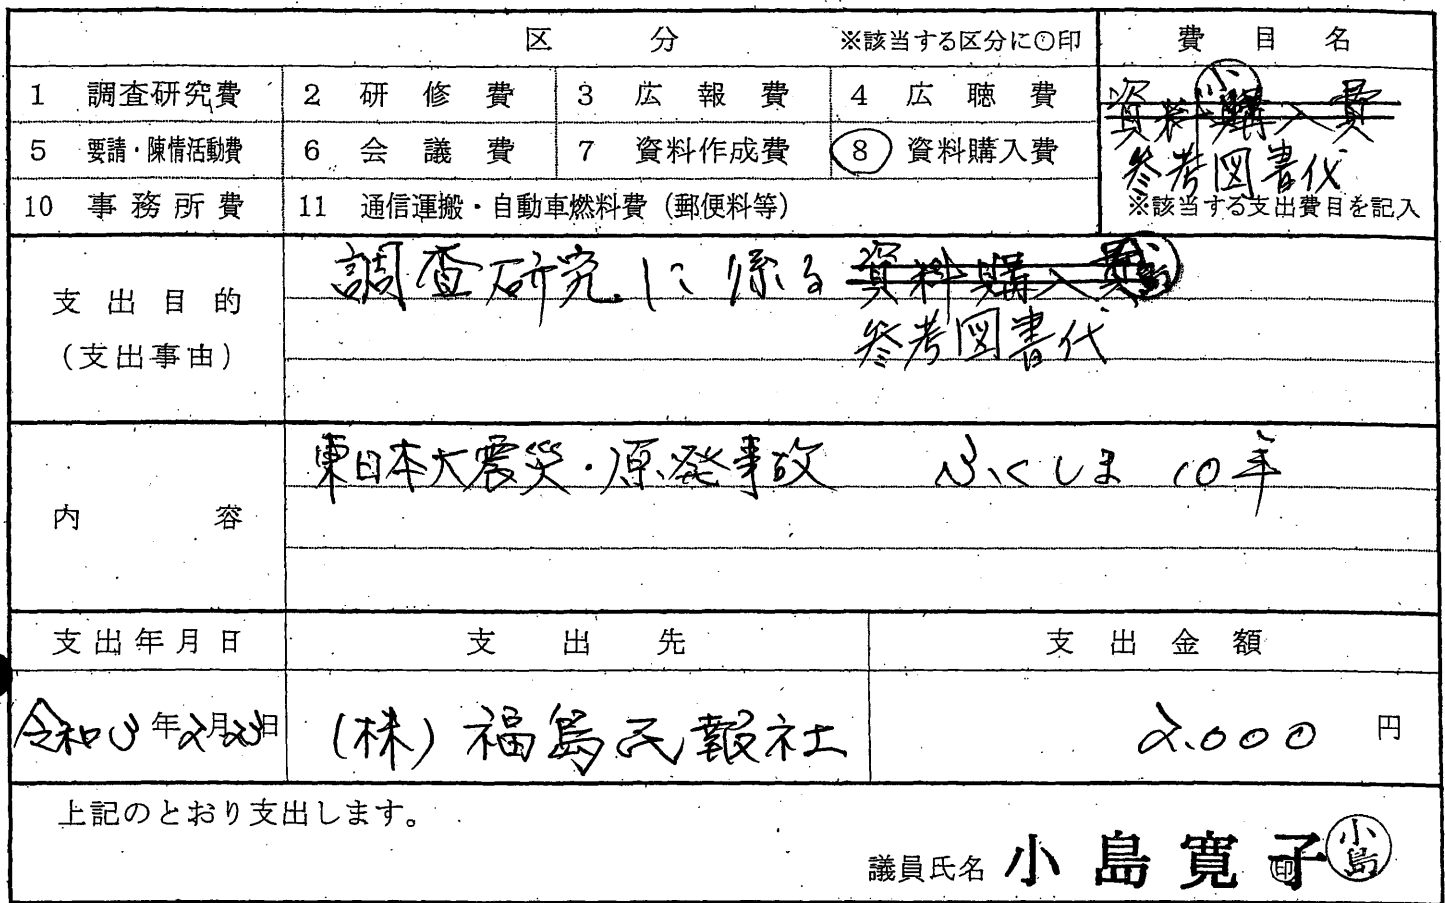 区 分 ※該当する区分に○印 費目名
1 調査研究費 2 研修費 3 広報費 4 広聴費 資料購入費
5 要請・陳情活動費 6 会議費 7 資料作成費 8 資料購入費 参考図書代
10 事務所費 11 通信運搬・自動車燃料費（郵便料等） ※該当する支出費目を記入
支出目的 調査研究に係る資料購入費
（支出事由） 参考図書代
内容 東日本大震災・原発事故 ふくしま 10年
支出年月日 支出先 支出金額
令和3年2月 日 （株）福島民報社 2.000 円
上記のとおり支出します。
議員氏名 小島寛子 印 小島